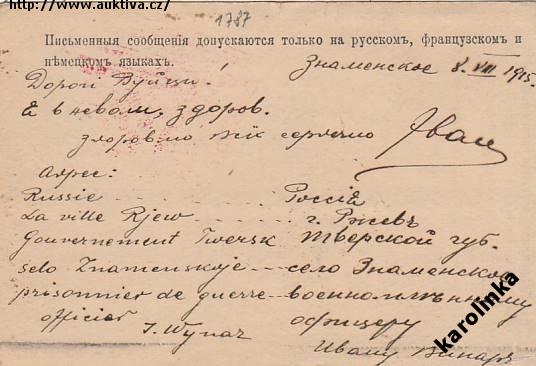 http://www.auktiva.cz/
1787
Письменныя сообщенія допускаются только на русскомъ, французскомъ и
нѣмецкомъ языкахъ.
Знаменское 8. VIII 1915.
Дорогі
Є в неволі, здоров.
здоровлю всїх сердечно Іван
Адрес:
Russie Россія
La ville Rjew г. Ржевъ
Gouvernement Twersk Тверской губ-
selo Znamenskoje село Знаменское
prisonnier de guerre военноплѣнному
officier офицеру
J. Wynar Ивану Винаръ
karolinka